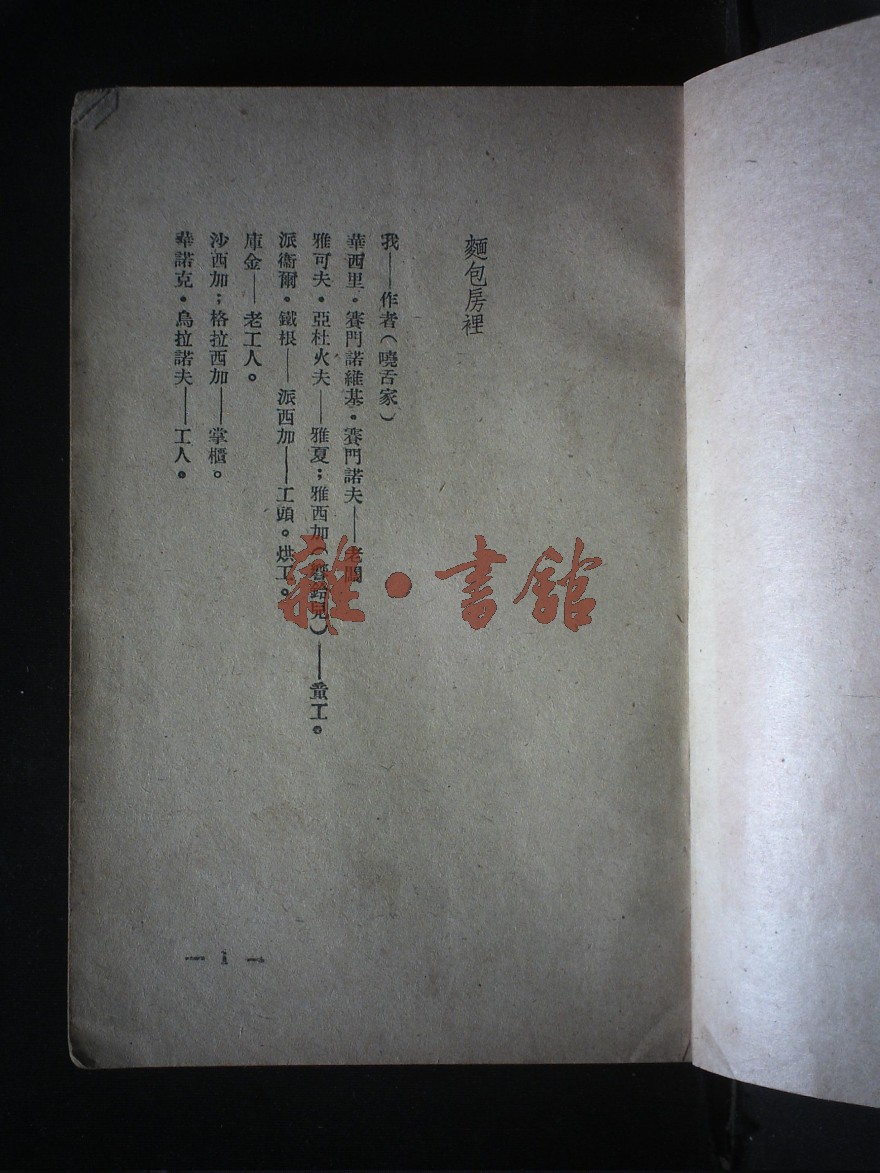 麵包房裡
我——作者（嘵舌家）
華西里·賽門諾維基·賽門諾夫——老闆
雅可夫·亞杜火夫——雅夏；雅西加（響鈴兒）——童工。
派衞爾·鐵根——派西加——工頭。烘工。
庫金——老工人。
沙西加；格拉西加——掌櫃。
華諾克·烏拉諾夫——工人。
— 1 —
雜·書館